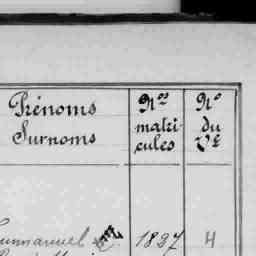 Prénoms
Surnoms
Nos
matri-
cules
No
du
Vé
1827 4